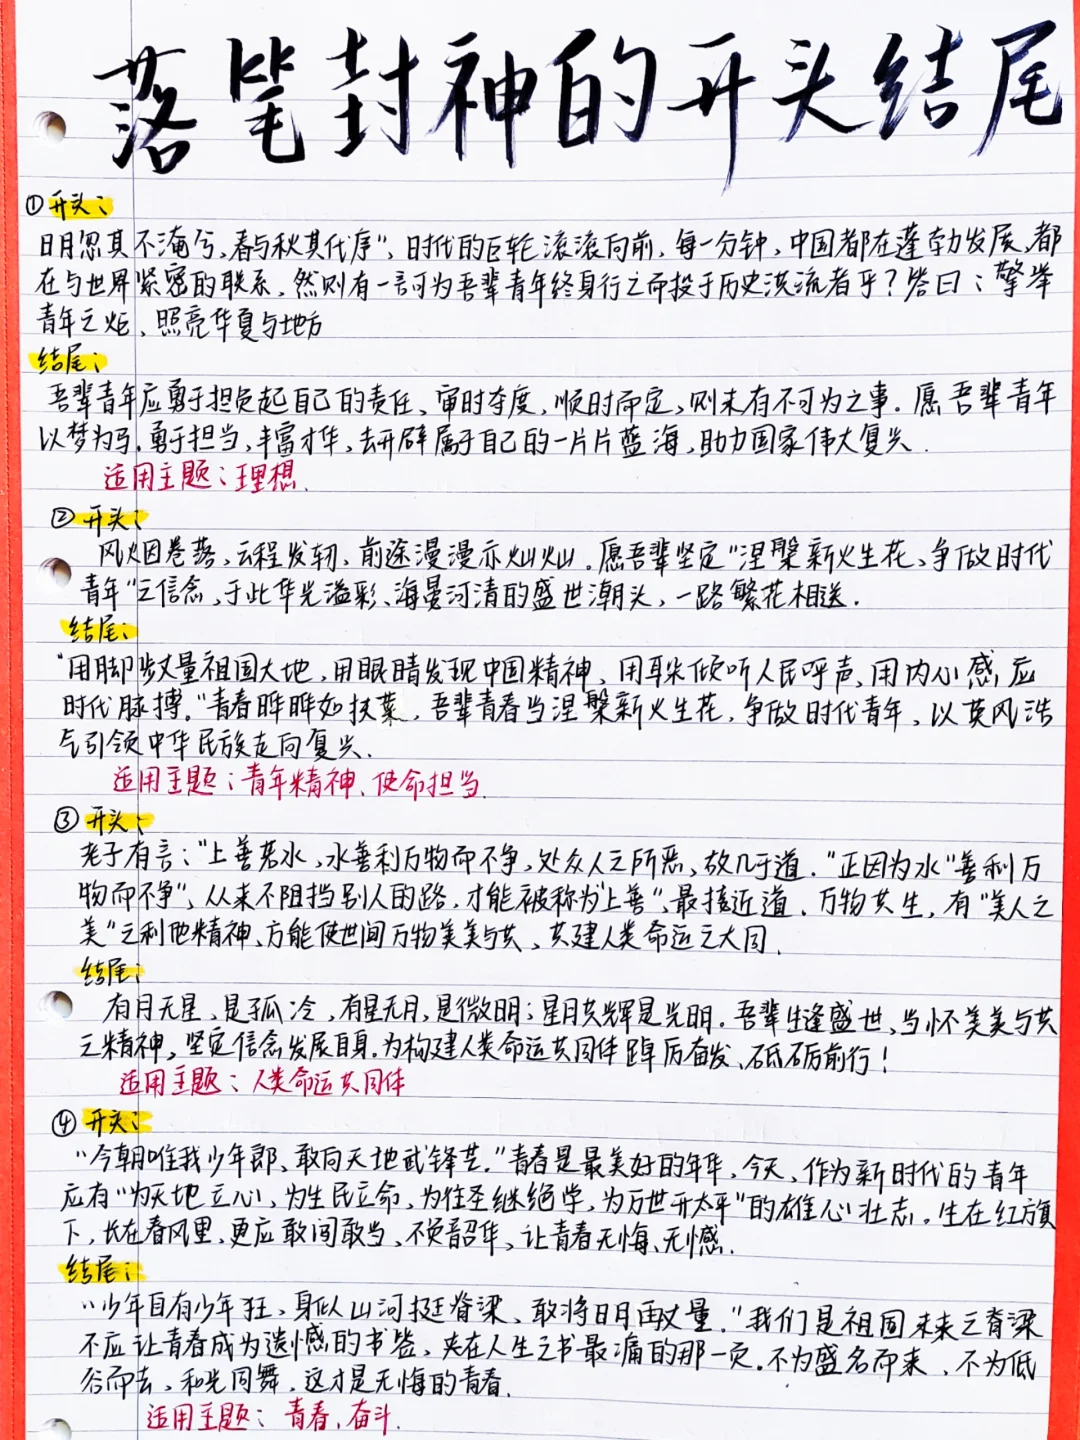 落笔封神的开头结尾
①开头:
日月忽其不淹兮,春与秋其代序",时代的巨轮滚滚向前,每一分钟,中国都在蓬勃发展,都
在与世界紧密的联系,然则有一言可为吾辈青年终身行之而投于历史洪流者乎?答曰:擎举
青年之炬,照亮华夏与地方
结尾:
吾辈青年应勇于担负起自己的责任,审时夺度,顺时而定,则未有不可为之事.愿吾辈青年
以梦为马,勇于担当,丰富才华,去开辟属于自己的一片片蓝海,助力国家伟大复兴.
适用主题:理想.
②开头:
风烟卷落,云程发轫,前途漫漫亦灿灿.愿吾辈坚定"涅槃新火生花,争做时代
青年"之信念,于此华光溢彩、海晏河清的盛世潮头,一路繁花相送.
结尾:
"用脚步丈量祖国大地,用眼睛发现中国精神,用耳朵倾听人民呼声,用内心感应
时代脉搏."青春晔晔如扶蕖,吾辈青春当涅槃新火生花,争做时代青年,以英风浩
气引领中华民族走向复兴.
适用主题:青年精神、使命担当
③开头:
老子有言:"上善若水,水善利万物而不争,处众人之所恶,故几于道."正因为水"善利万
物而不争",从来不阻挡别人的路,才能被称为"上善",最接近道.万物共生,有"美人之
美"之利他精神,方能使世间万物美美与共,共建人类命运之大同.
结尾:
有月无星,是孤冷,有星无月,是微明;星月共辉是光明.吾辈生逢盛世,当怀美美与共
之精神,坚定信念发展自身.为构建人类命运共同体踔厉奋发、砥砺前行!
适用主题:人类命运共同体
④开头:
"今朝唯我少年郎,敢向天地试锋芒."青春是最美好的年华,今天,作为新时代的青年
应有"为天地立心,为生民立命,为往圣继绝学,为万世开太平"的雄心壮志.生在红旗
下,长在春风里,更应敢闯敢当,不负韶华,让青春无悔、无憾.
结尾:
"少年自有少年狂,身似山河挺脊梁、敢将日月再丈量."我们是祖国未来之脊梁
不应让青春成为遗憾的书签,夹在人生之书最痛的那一页.不为盛名而来,不为低
谷而去,和光同舞,这才是无悔的青春.
适用主题:青春,奋斗.